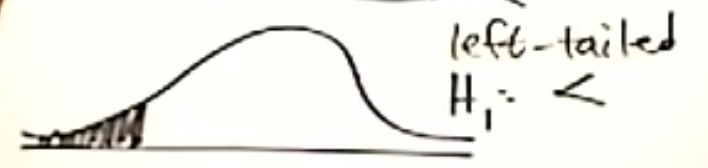 left-tailed
H₁: <